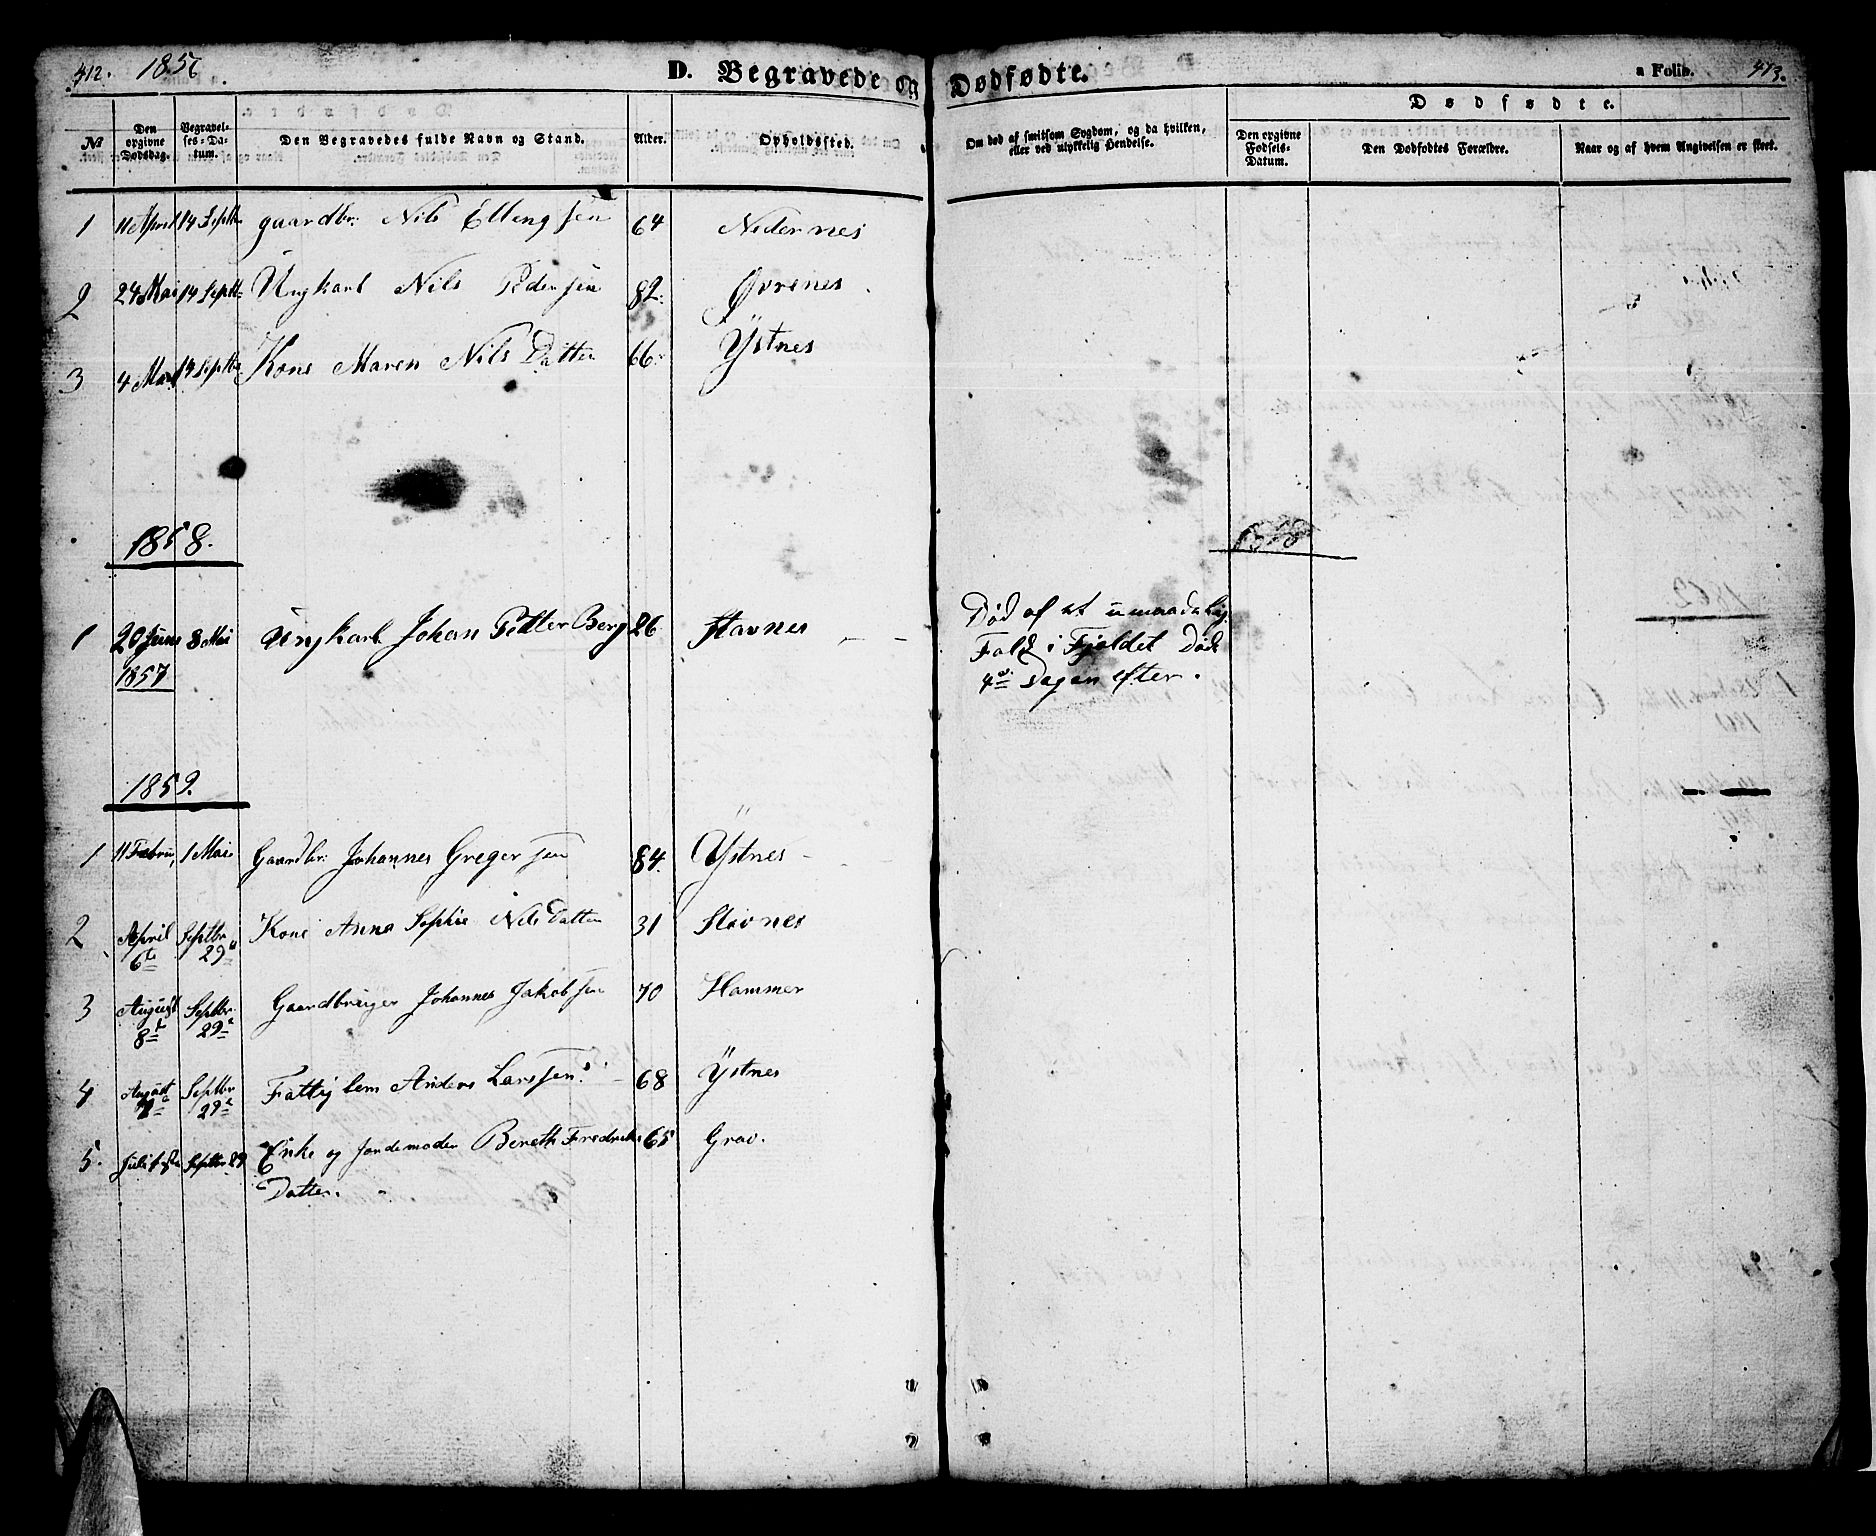 412. 1857 D. Begravede og Dødfødte. a Folio. 413.
№ Den opgivne Dødsdag. Begravelses-Datum. Den Begravedes fulde Navn og Stand. Alder. Opholdssted. Om død af smitsom Sygdom, og da hvilken, eller ved ulykkelig Hendelse. Dødfødte.
Den opgivne Fødsels-Datum. Den Dødfødtes Forældre. Naar og af hvem Angivelsen er skeet.
1 11 April 14 Septbr gaardbr: Nils Ellingsen 64 Nedernes
2 24 Mai 14 Septbr Ungkarl Nils Pedersen 82. Øvrenes
3 4 14 Septbr Kone Maren Nils Datter 66 Ystnes
1858. 1858
1 20 Juni 1857 8 Mai Ungkarl Johan Petter Berg 26 Stavnes
Død af et umaadelig
Fald i Fjeldet Døde
4de Dagen efter.
1859.
1 11 Febru, 1 Mai Gaardbr: Johannes Gregersen 84. Ystnes
2 April 6te Septbr 29de Kone Anna Sophie Nils Datter 31 Stavnes
3 August 8de Septbr. 29de Gaardbruger Johannes Jakobsen 70 Hammer
4 August Septbr 29de Fattiglem Anders Larssen 68 Ystnes
5. Juli 1ste Septbr 29 Enke og Jordemoder Bereth Fredriks 65 Grav.
Datter.